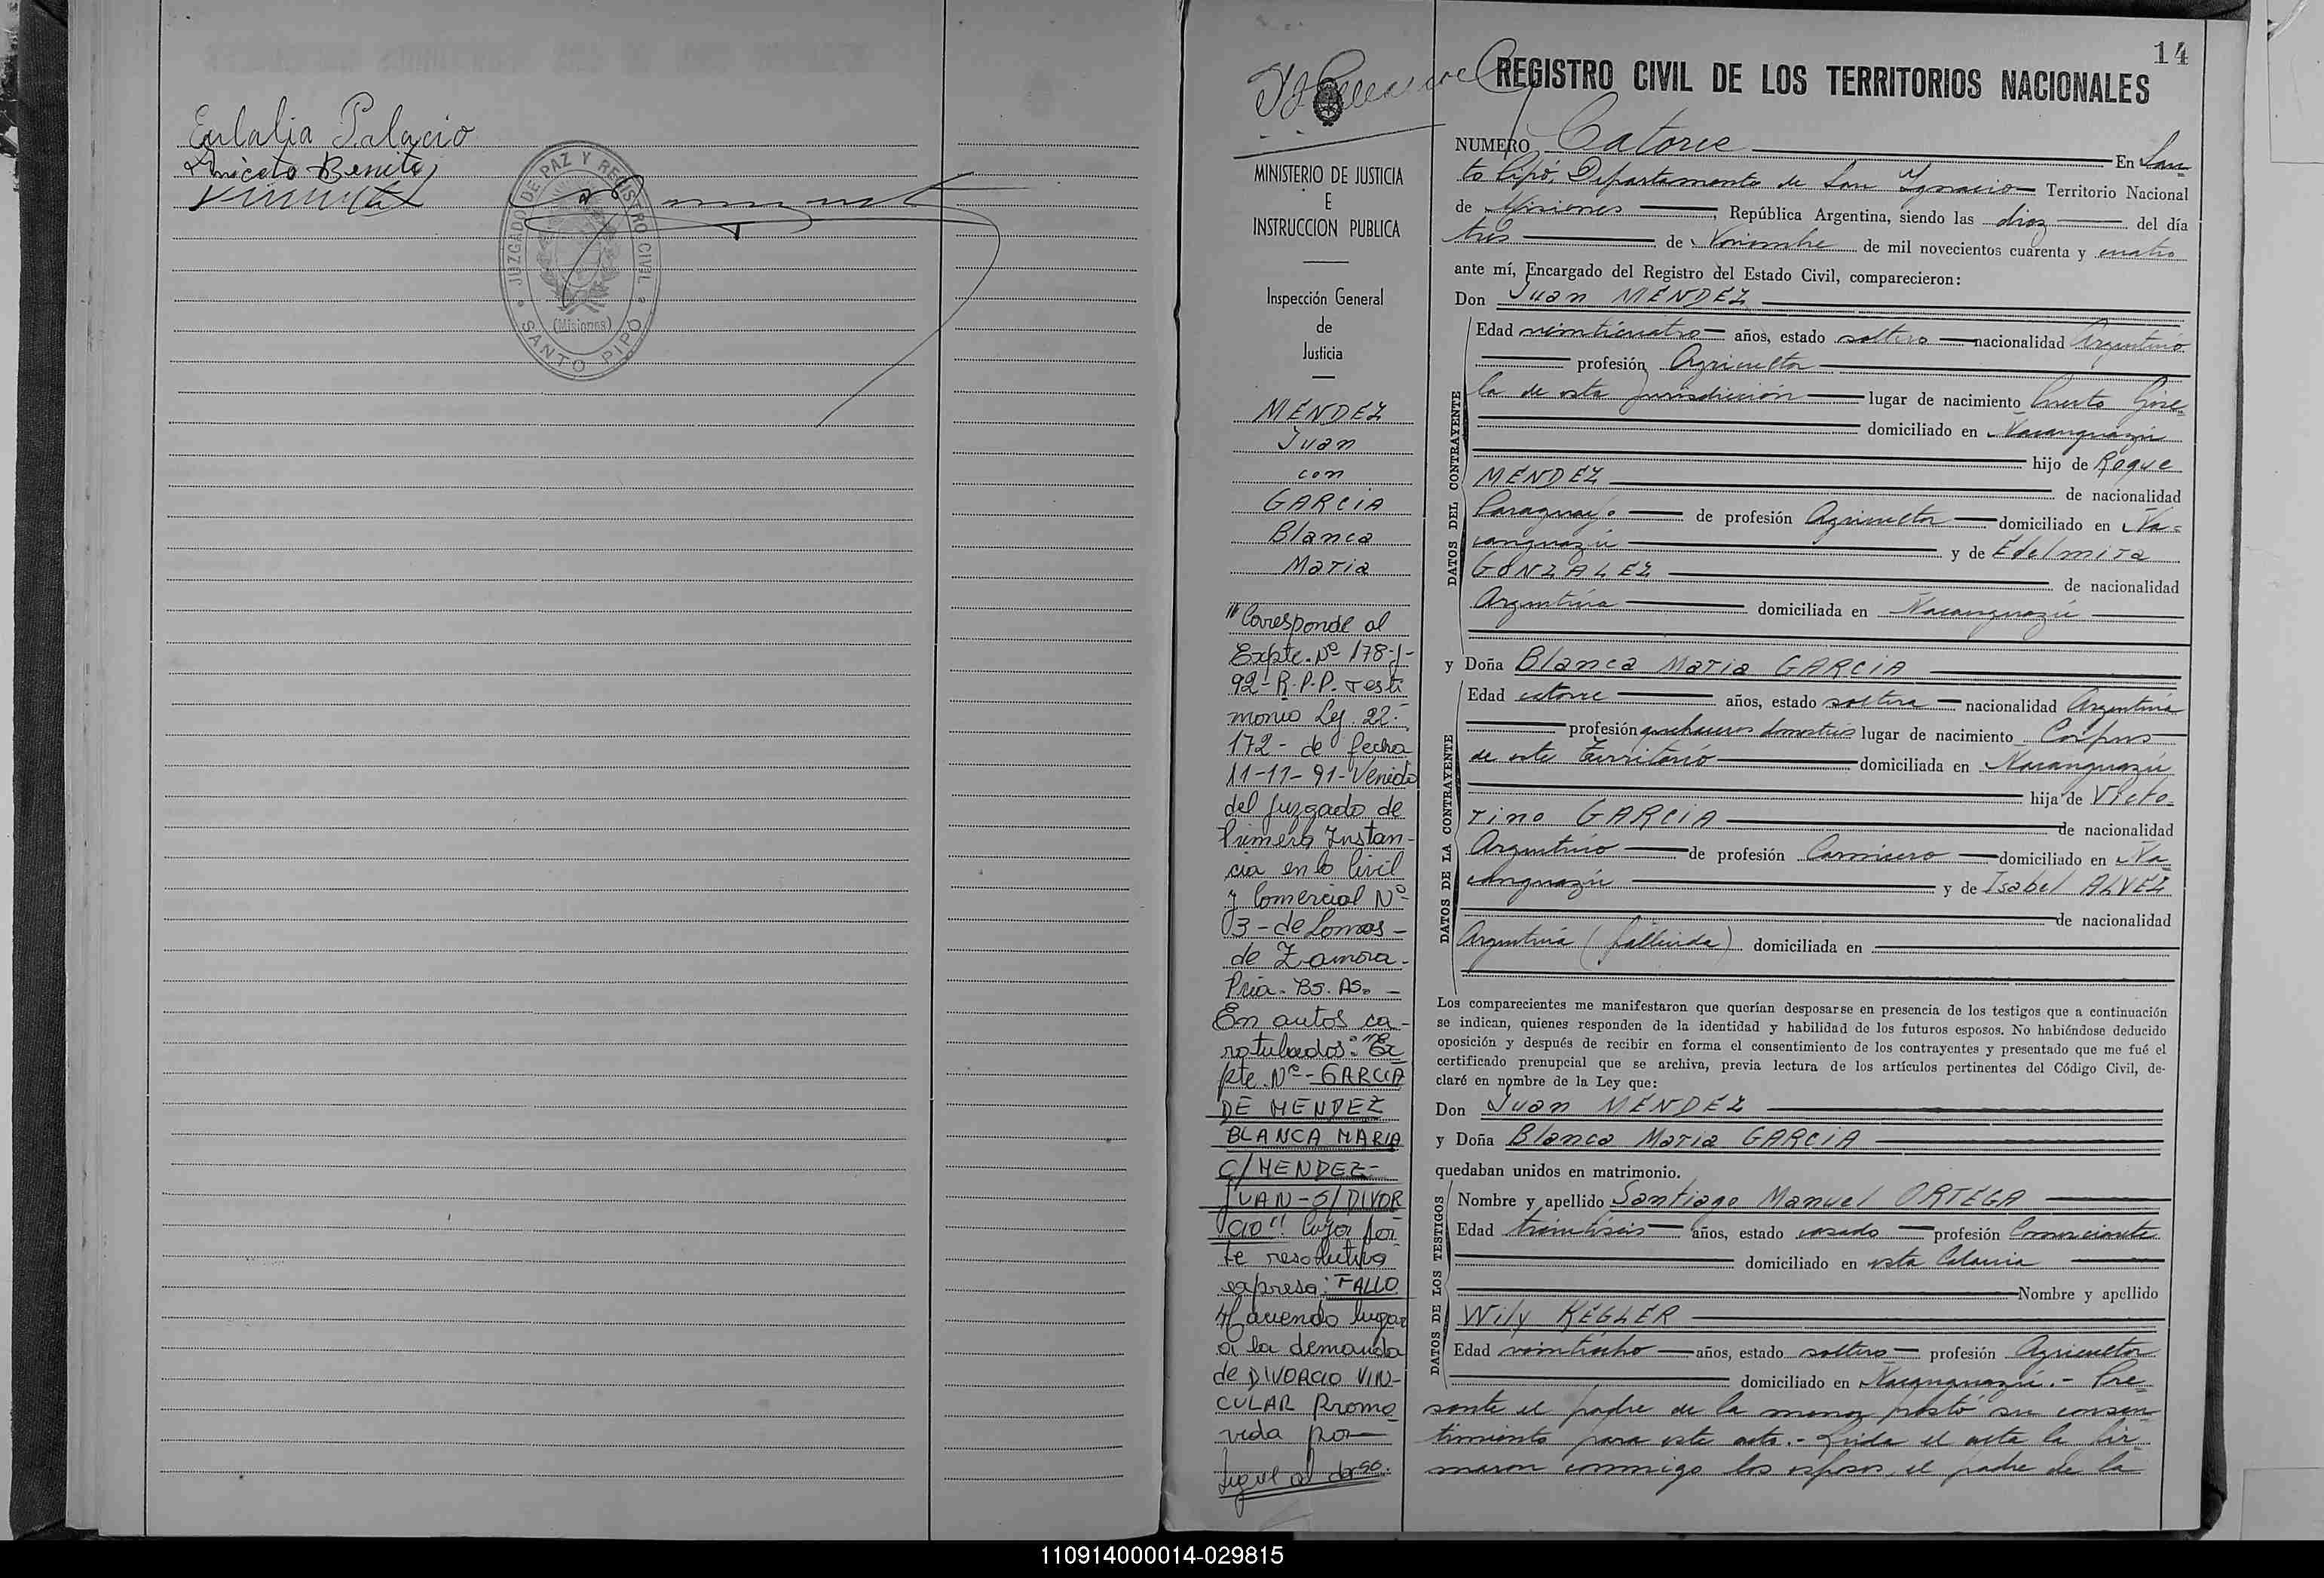 Eulalia Palacio
Aniceto Benitez
JUZGADO DE PAZ Y REGISTRO CIVIL
(Misiones)
SANTO PIPO
14
REGISTRO CIVIL DE LOS TERRITORIOS NACIONALES
MINISTERIO DE JUSTICIA
E
INSTRUCCION PUBLICA
Inspección General
de
Justicia
MENDEZ
Juan
con
GARCIA
Blanca
Maria
"Corresponde al
Expte. Nº 178-J-
92-R.P.P. Testi
monio Ley 22.
172- de fecha
11-11-91- Venido
del Juzgado de
Primera Instan-
cia en lo Civil
y Comercial Nº
03 - de Lomas -
de Zamora -
Pcia. BS. AS. -
En autos ca-
ratulados: "Ex
pte. Nº - GARCIA
DE MENDEZ
BLANCA MARIA
C/ MENDEZ -
JUAN - S/ DIVOR
CIO" Cuya par
te resolutiva
expresa: FALLO
Haciendo lugar
a la demanda
de DIVORCIO VIN-
CULAR Promo
vida por
Sigue al dorso.
NUMERO Catorce En San
to Pipó, Departamento de San Ignacio Territorio Nacional
de Misiones, República Argentina, siendo las diez del día
tres de Noviembre de mil novecientos cuarenta y cuatro
ante mí, Encargado del Registro del Estado Civil, comparecieron:
Don Juan MENDEZ
DATOS DEL CONTRAYENTE
Edad veinticuatro años, estado soltero nacionalidad Argentino
profesión Agricultor
la de esta jurisdicción lugar de nacimiento Puerto Gise-
domiciliado en Ñacanguazú
hijo de Roque
MENDEZ de nacionalidad
Paraguayo de profesión Agricultor domiciliado en Ña-
canguazú y de Edelmira
GONZALEZ de nacionalidad
Argentina domiciliada en Ñacanguazú
y Doña Blanca Maria GARCIA
DATOS DE LA CONTRAYENTE
Edad catorce años, estado soltera nacionalidad Argentina
profesión quehaceres domésticos lugar de nacimiento Corpus
de este Territorio domiciliada en Ñacanguazú
hija de Victo-
rino GARCIA de nacionalidad
Argentino de profesión Carnicero domiciliado en Ña
canguazú y de Isabel ALVEZ
de nacionalidad
Argentina (fallecida) domiciliada en
Los comparecientes me manifestaron que querían desposarse en presencia de los testigos que a continuación
se indican, quienes responden de la identidad y habilidad de los futuros esposos. No habiéndose deducido
oposición y después de recibir en forma el consentimiento de los contrayentes y presentado que me fué el
certificado prenupcial que se archiva, previa lectura de los artículos pertinentes del Código Civil, de-
claré en nombre de la Ley que:
Don Juan MENDEZ
y Doña Blanca Maria GARCIA
quedaban unidos en matrimonio.
DATOS DE LOS TESTIGOS
Nombre y apellido Santiago Manuel ORTEGA
Edad treintiseis años, estado casado profesión Comerciante
domiciliado en esta Colonia
Nombre y apellido
Wily KEGLER
Edad veintiocho años, estado soltero profesión Agricultor
domiciliado en Ñacanguazú.- Pre
sente el padre de la menor prestó su consen
timiento para este acto.- Leida el acta la fir
maron conmigo los esposos, el padre de la
110914000014-029815